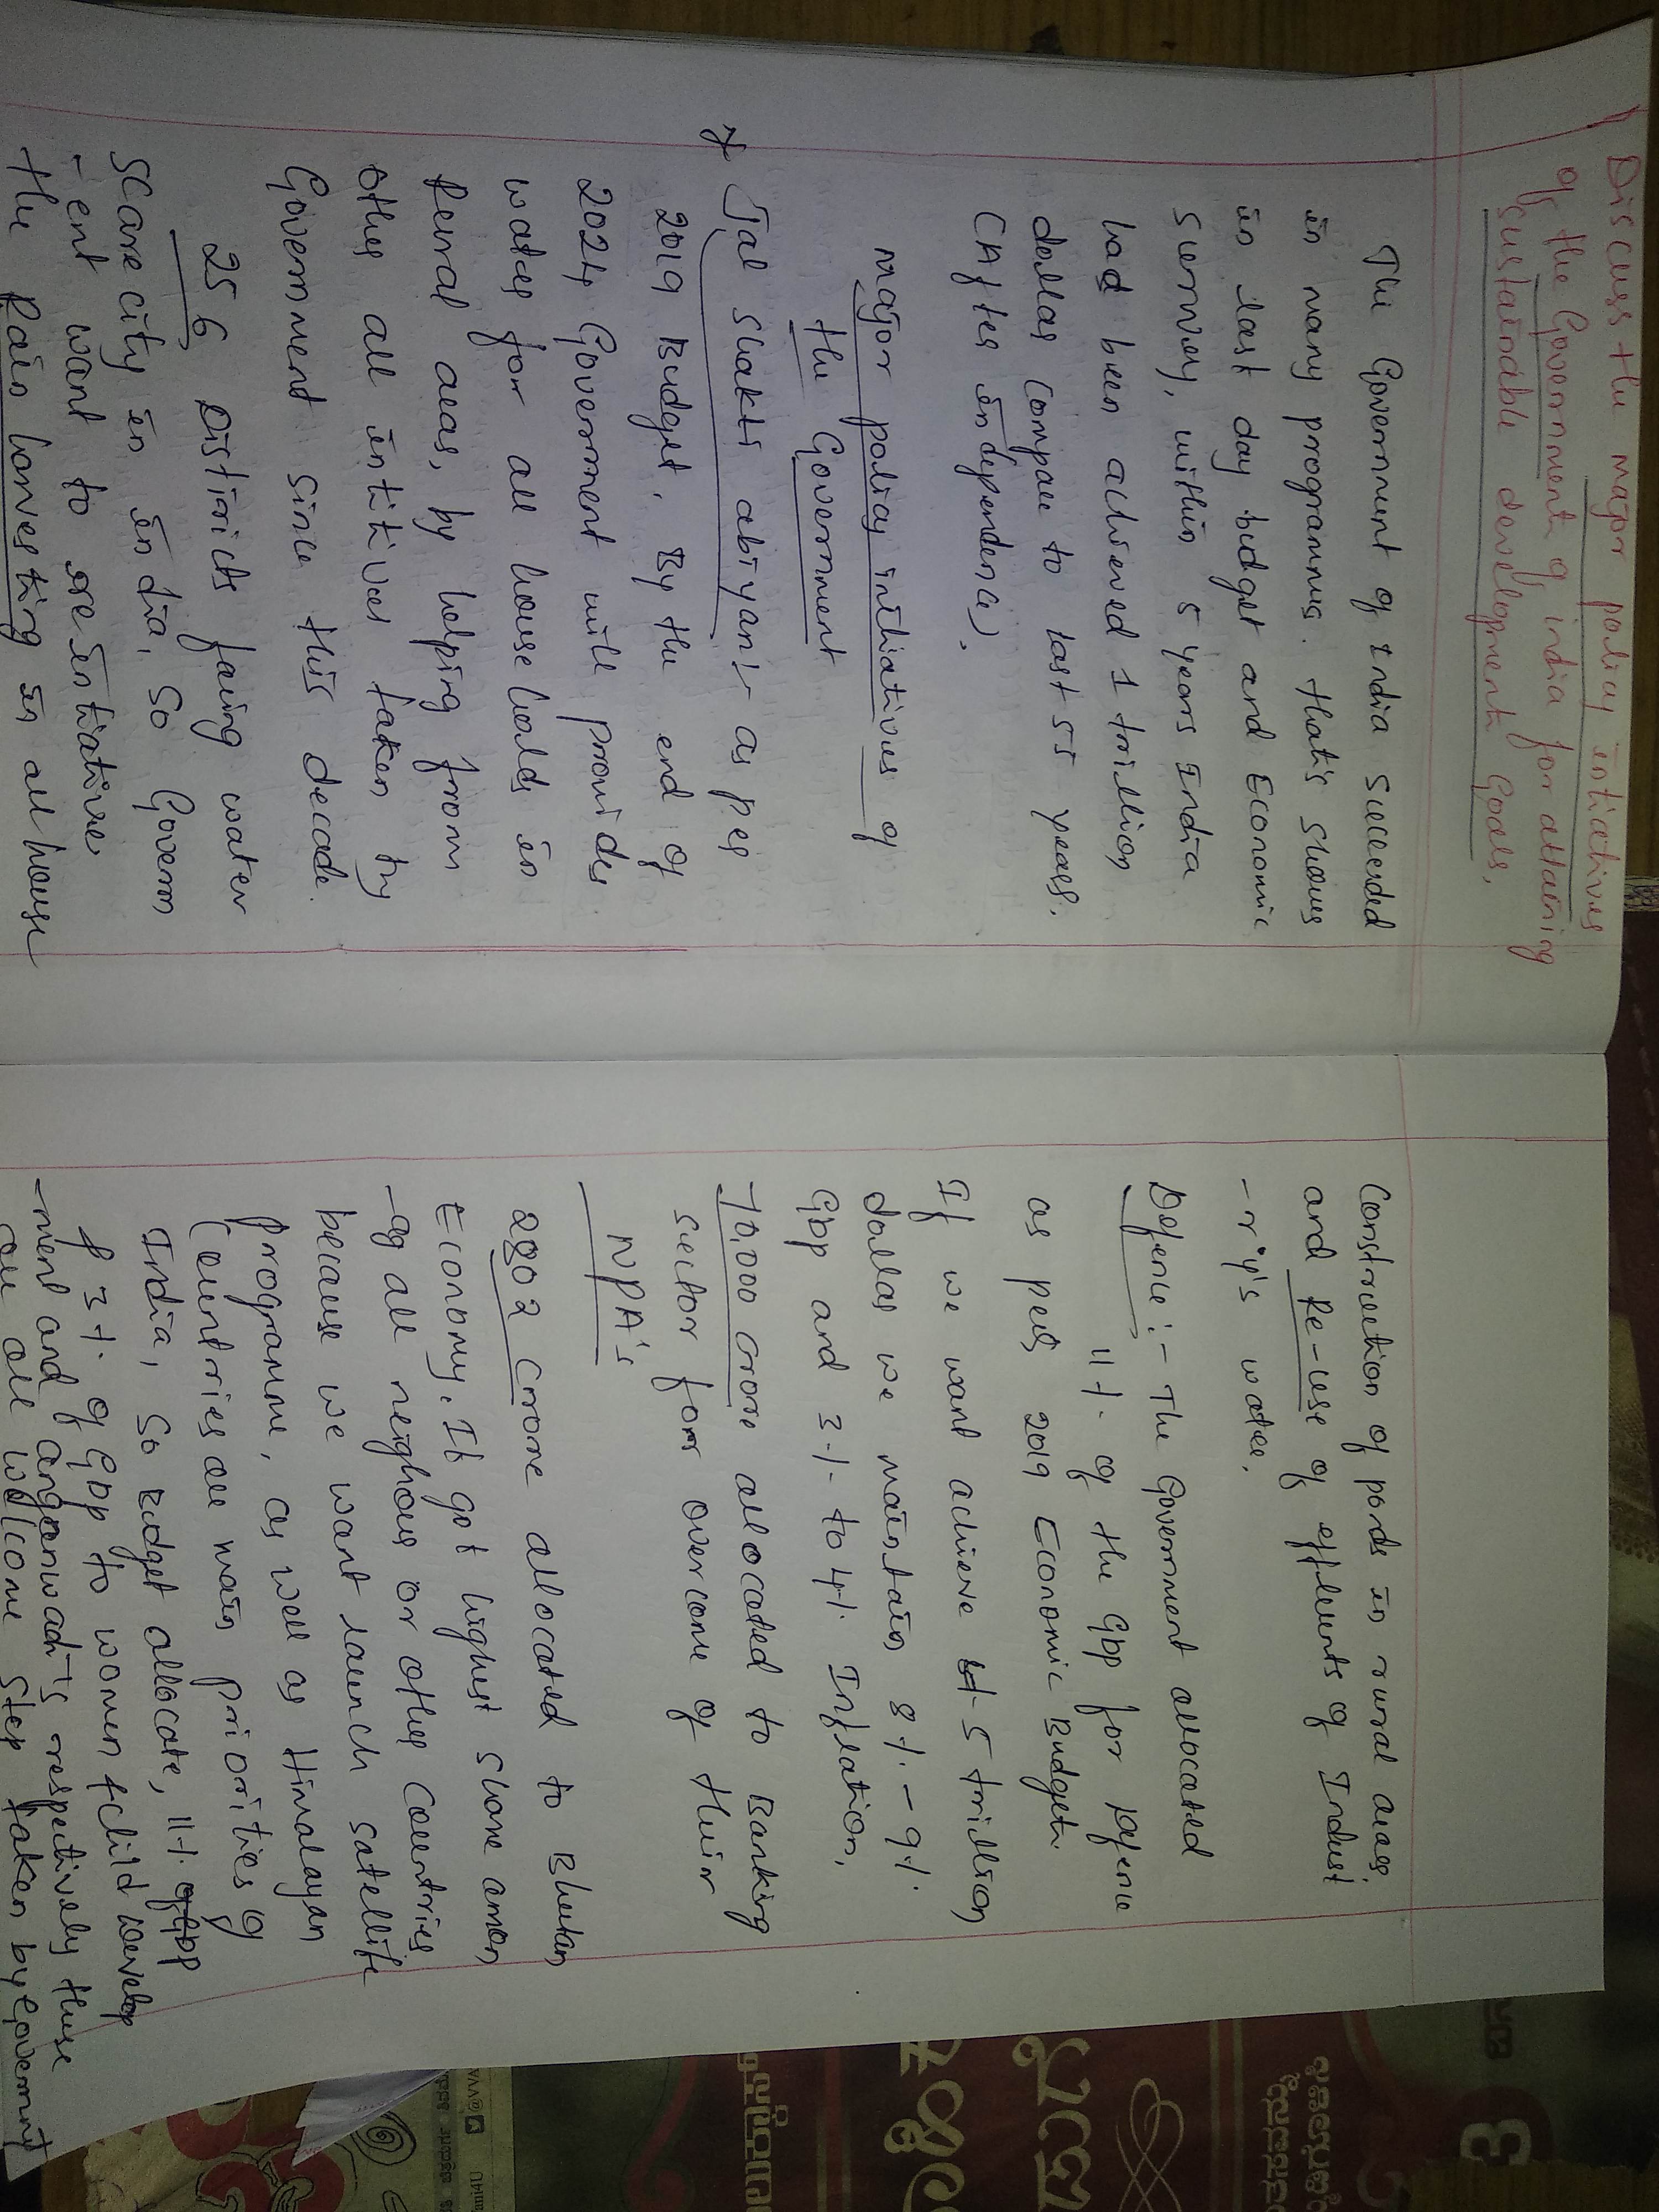 Discuss the major policy intiactives
of the Government of india for attaining
sustainable development Goals.
The Government of India succeded
in many programmes. that's shows
in last day budget and Economic
survey, within 5 years India
had been achieved 1 trillion
dollar compare to last 55 years.
(After independence).
major policy initiatives of
the Government
* Jal shakti abiyan:- as per
2019 Budget. By the end of
2024 Government will provides
water for all house holds in
rural areas, by helping from
other all intitives taken by
Government since this decade.
256 Districts facing water
scarecity in india, so Govern
-ent want to re intiative
the Rain harvesting in all house
Construction of ponds in rural areas
and Re-use of effluents of Indust
-ry's water.
Defence:- The Government allocated
11% of the GDP for Defence
as per 2019 Economic Budget.
If we want achieve 5 trillion
dollar we maintain 8% - 9%
GDP and 3% to 4% Inflation.
70,000 crore allocated to Banking
sector for overcome of their
NPA's
2802 crore allocated to Bhutan
Economy. It got highest share amon
-g all neighours or other Countries
because we want launch satellite
programme, as well as Himalayan
Countries are main priorities of
India, so Budget allocate, 11% of GDP
& 3% of GDP to women & child develop
-ment and anganwadi's respectively these
are all welcome step taken by Government
ಹಿಂ
ಡುಗೆ
3
@VVA
ani4U